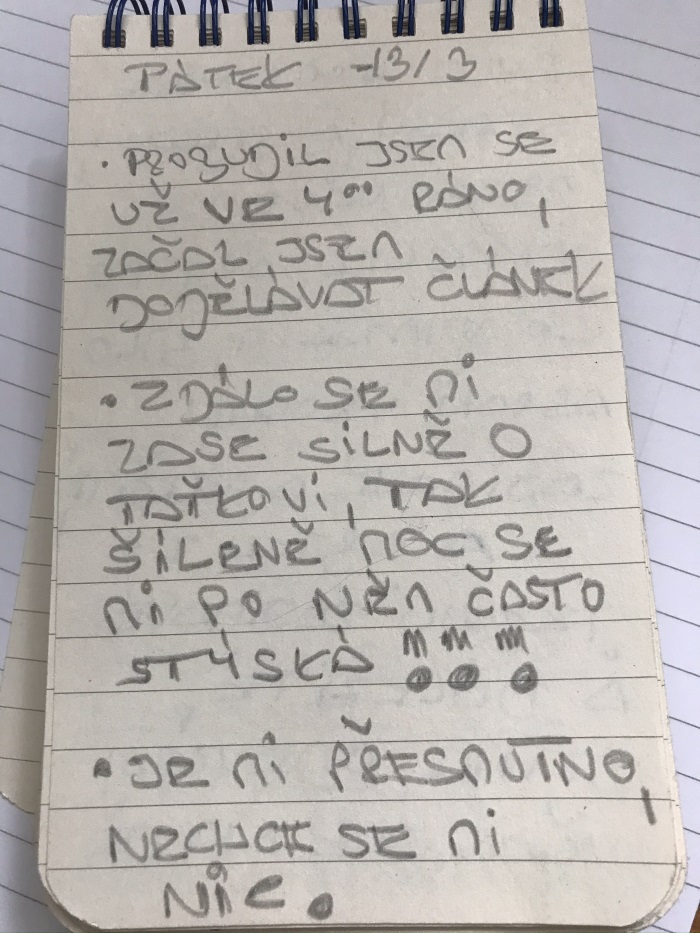 PÁTEK -13/3
• PROBUDIL JSEM SE
UŽ VE 4⁰⁰ RÁNO,
ZAČAL JSEM
DODĚLÁVAT ČLÁNEK
• ZDÁLO SE MI
ZASE SILNĚ O
TAŤKOVI, TAK
ŠÍLENĚ MOC SE
MI PO NĚM ČASTO
STÝSKÁ !!!
• JE MI PŘESMUTNO,
NECHCE SE MI
NIC.